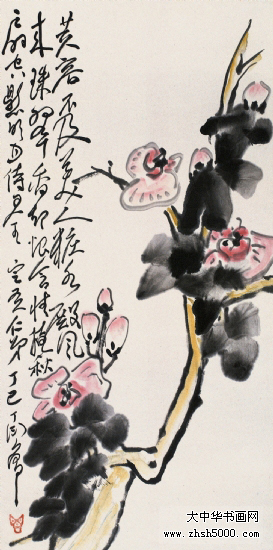 芙蓉不及美人粧水殿風
來珠翠香却恨含情掩秋
扇空懸明月待君王 仁弟 丁巳 丁衍庸
大中华书画网
www.zhsh5000.com